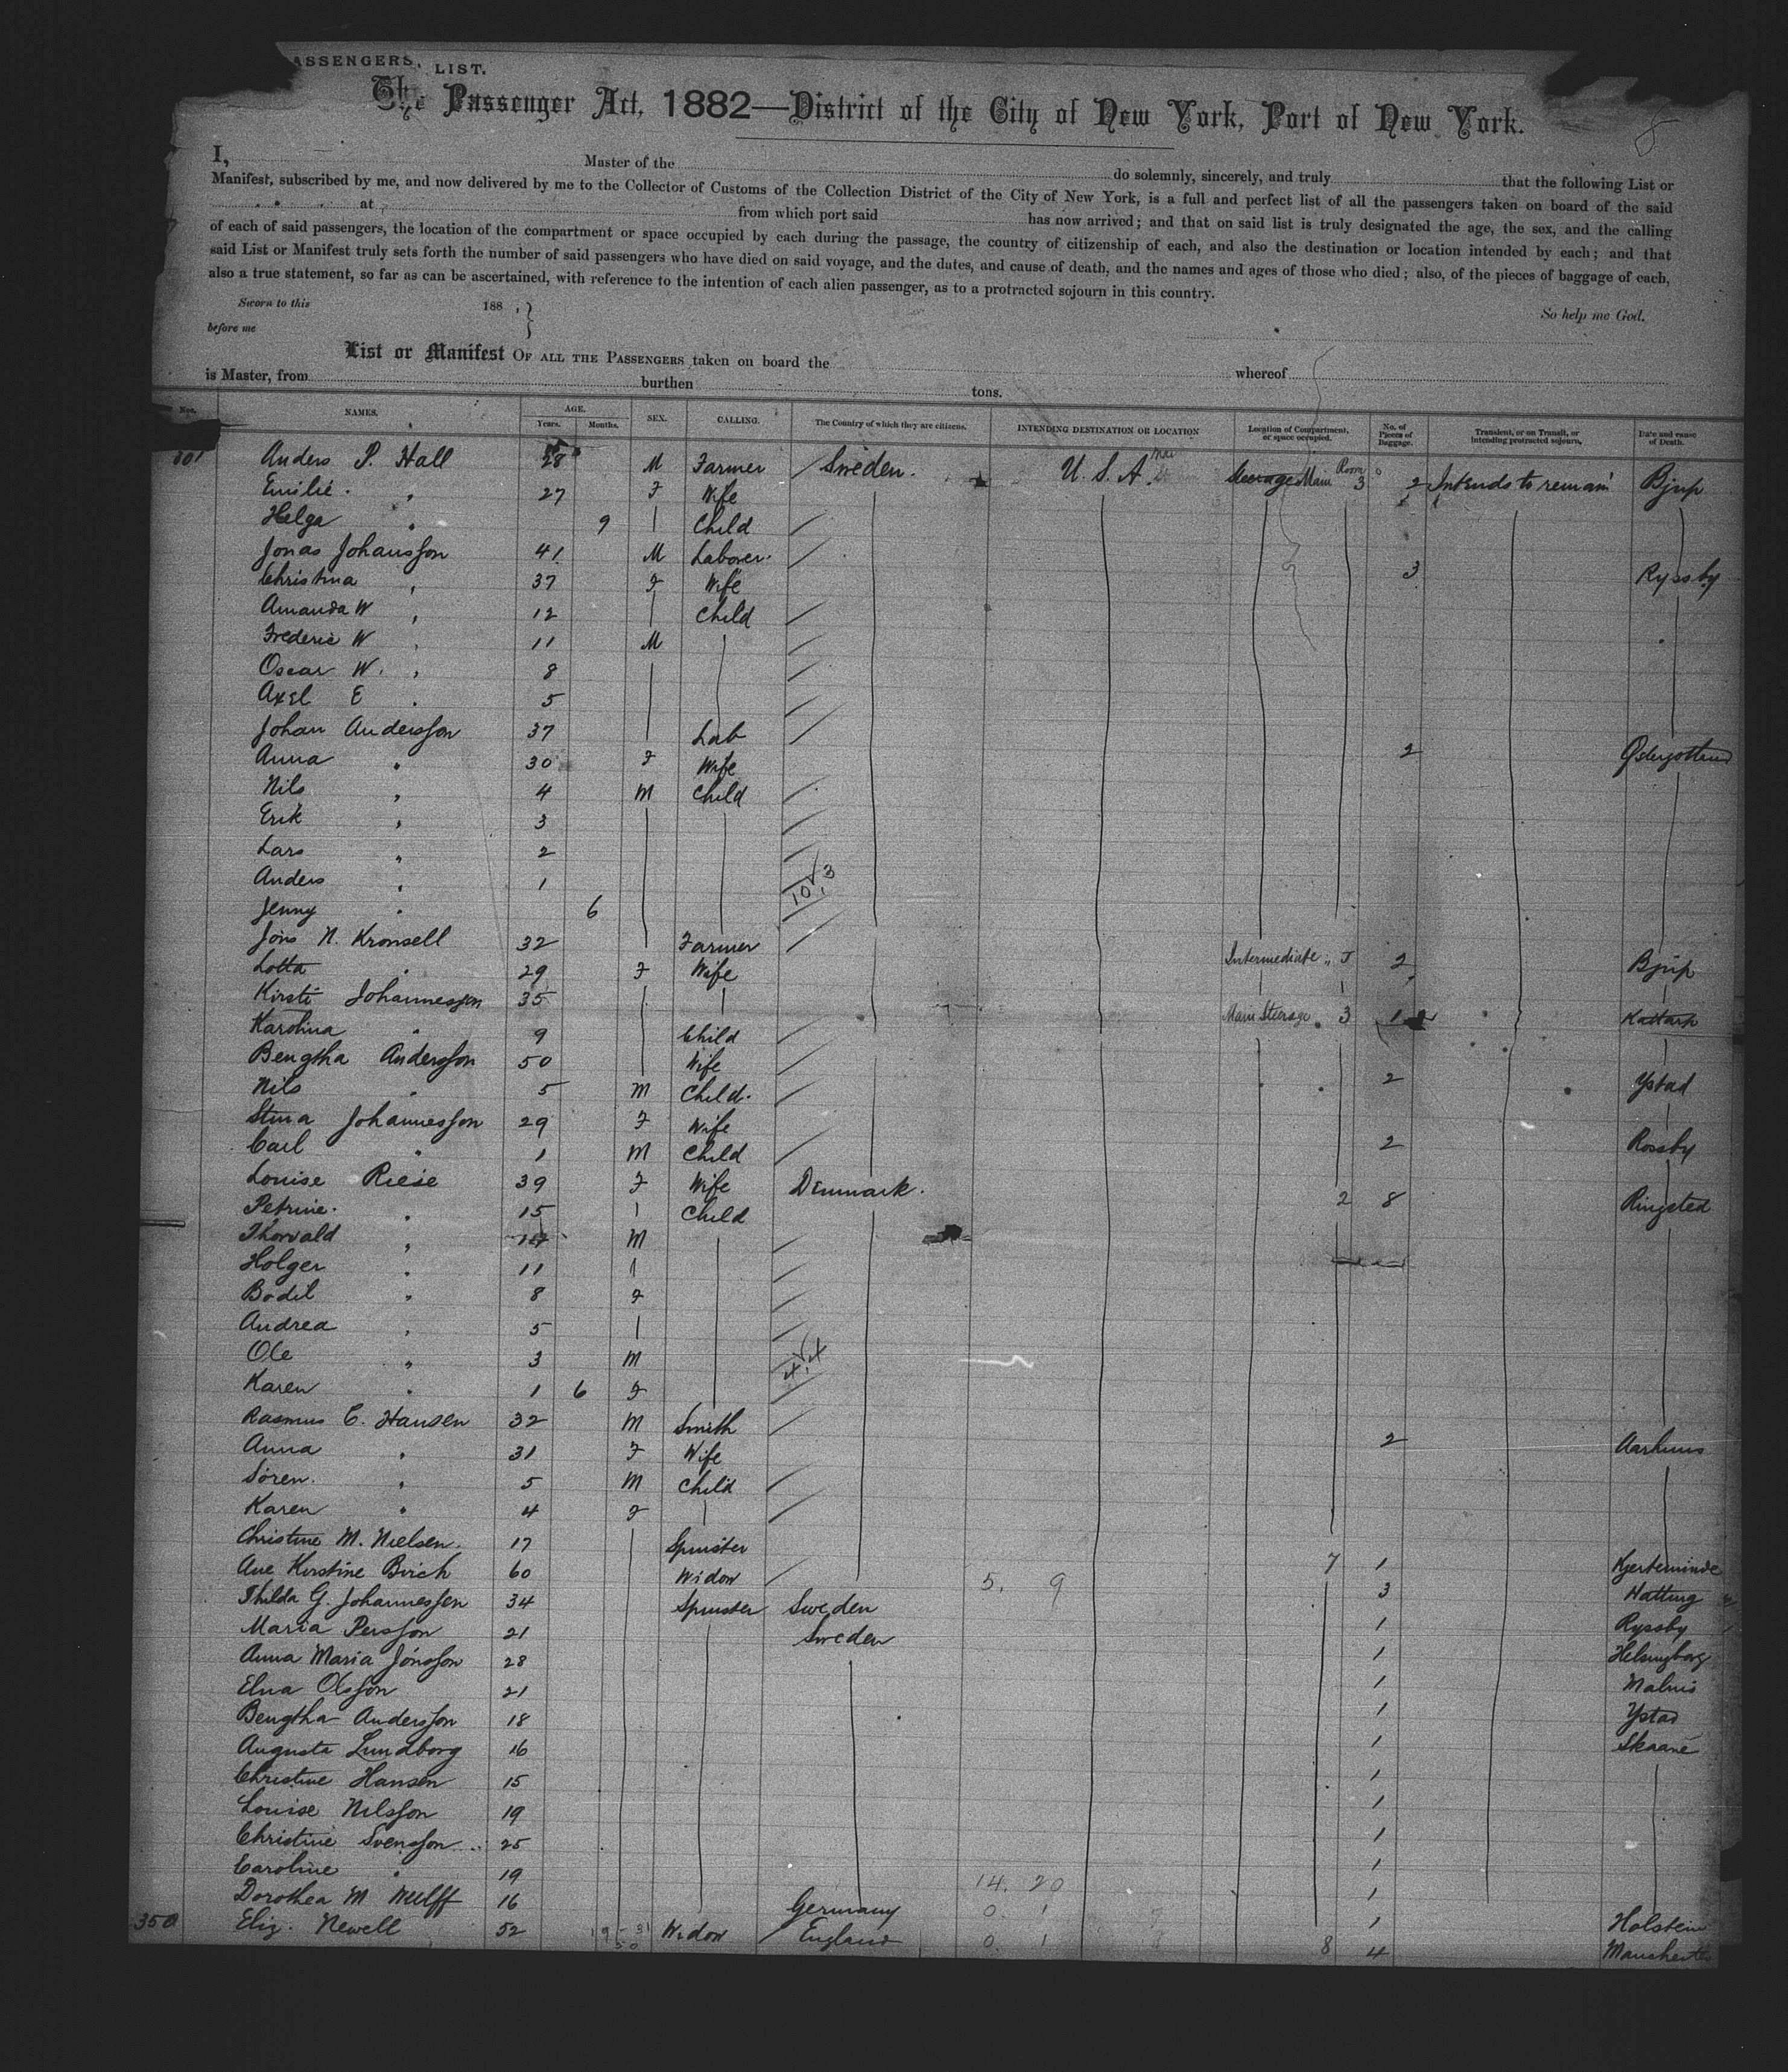 ASSENGERS, LIST.
The Passenger Act, 1882—District of the City of New York, Port of New York.
8
I, Master of the do solemnly, sincerely, and truly that the following List or
Manifest, subscribed by me, and now delivered by me to the Collector of Customs of the Collection District of the City of New York, is a full and perfect list of all the passengers taken on board of the said
at from which port said has now arrived; and that on said list is truly designated the age, the sex, and the calling
of each of said passengers, the location of the compartment or space occupied by each during the passage, the country of citizenship of each, and also the destination or location intended by each; and that
said List or Manifest truly sets forth the number of said passengers who have died on said voyage, and the dates, and cause of death, and the names and ages of those who died; also, of the pieces of baggage of each,
also a true statement, so far as can be ascertained, with reference to the intention of each alien passenger, as to a protracted sojourn in this country.
Sworn to this 188 , } So help me God.
before me
List or Manifest OF ALL THE PASSENGERS taken on board the whereof
is Master, from burthen tons.
Nos. NAMES. AGE. Years. Months. SEX. CALLING. The Country of which they are citizens. INTENDING DESTINATION OR LOCATION Location of Compartment, or space occupied. No. of Pieces of Baggage. Transient, or on Transit, or intending protracted sojourn. Date and cause of Death.
301 Anders P. Hall 28 M Farmer Sweden. U.S.A. Steerage Main Room 3 2 Intends to remain Bjup
Emilie " 27 F Wife
Helga " 9 Child
Jonas Johansson 41 M Laborer 3 Ryssby
Christina " 37 F Wife
Amanda W " 12 Child
Frederic W " 11 M
Oscar W. " 8
Axel E " 5
Johan Andersson 37 Lab 2 Ostergotland
Anna " 30 F Wife
Nils " 4 M Child
Erik " 3
Lars " 2
Anders " 1 10 3
Jenny " 6
Jöns N. Kronsell 32 Farmer Intermediate " J 2 Bjup
Lotta " 29 F Wife
Kirsti Johannesson 35 Main Steerage 3 1
Karolina " 9 Child
Bengtha Andersson 50 Wife 2 Ystad
Nils " 5 M Child
Stina Johannesson 29 F Wife 2 Rossby
Carl " 1 M Child
Louise Riese 39 F Wife Denmark. 2 8 Ringsted
Petrine " 15 Child
Thorvald " M
Holger " 11
Bodil " 8 F
Andrea " 5
Ole " 3 M 4 4
Karen " 1 6 F
Rasmus C. Hansen 32 M Smith 2 Aarhuus
Anna " 31 F Wife
Sören " 5 M Child
Karen " 4 F
Christine M. Nielsen 17 Spinster 7 1 Kjerteminde
Ane Kirstine Birch 60 Widow 5. 9 3 Hatting
Thilda G. Johannessen 34 Spinster Sweden 1 Ryssby
Maria Persson 21 Sweden 1 Helsingborg
Anna Maria Jönsson 28 1 Malmö
Elna Olsson 21 1 Ystad
Bengtha Andersson 18 1 Skaane
Augusta Lundborg 16 1
Christine Hansen 15 1
Louise Nilsson 19 1
Christine Svensson 25 1
Caroline " 19 14. 20 1
Dorothea M Wulff 16 Germany 0. 1 1 Holstein
350 Eliz. Newell 52 19 31 50 Widow England 0. 1 8 4 Manchester